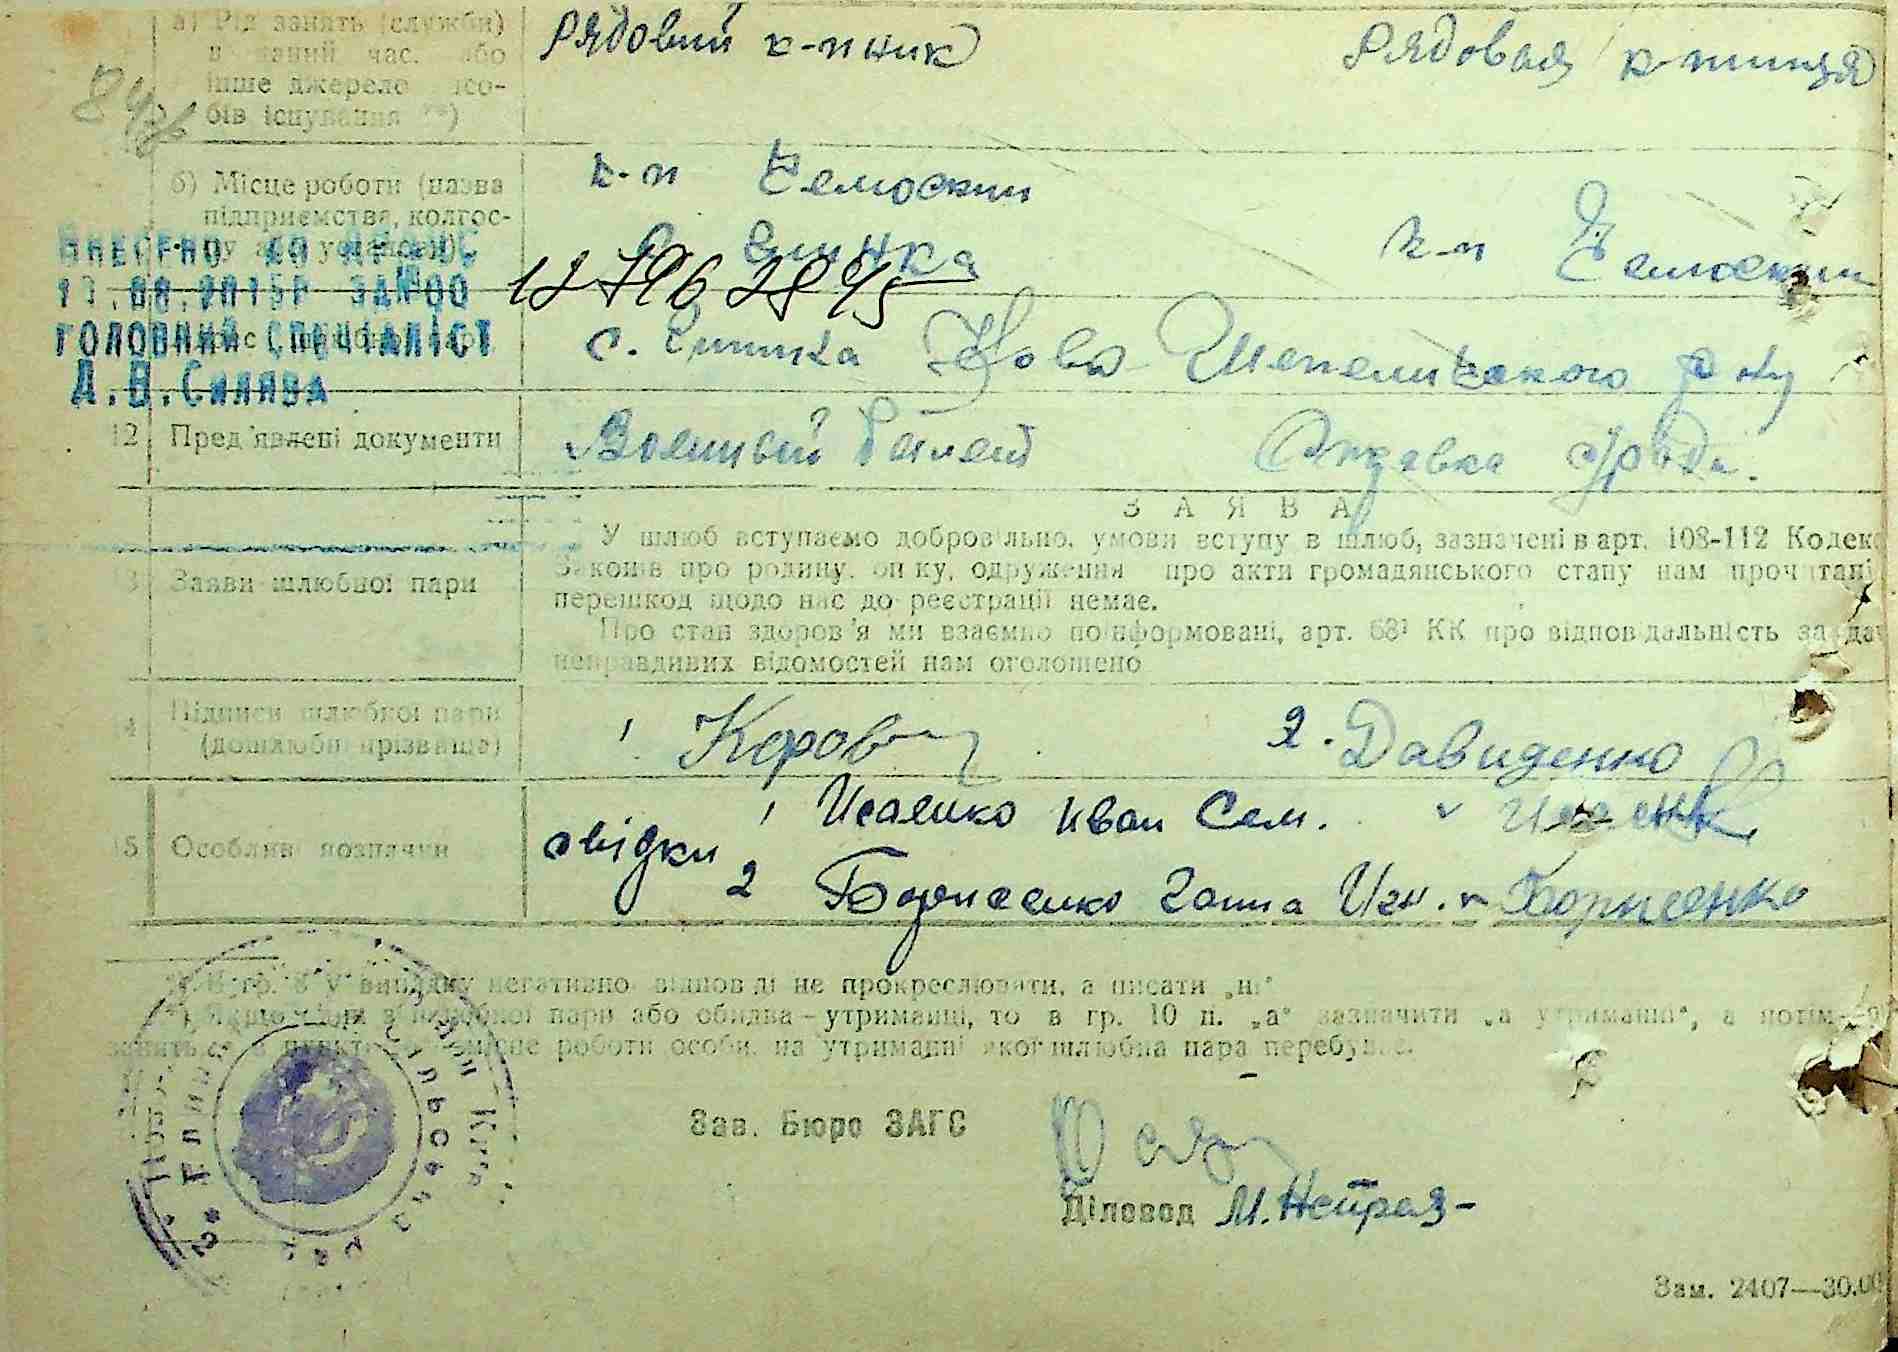 а) Рід занять (службы)
в даний час, або
інше джерело засо-
бів існування **)
Рядовий к-пник
Рядовая к-пниця
б) Місце роботи (назва
підприємства, колгос-
пу або установи)
к-п Челюскин
с Глинка
к-п Челюскин
ВНЕСЕНО ДО ДРАЦС
ГОЛОВНИЙ СПЕЦІАЛІСТ
с. Глинка Ново Шепелицкого р-ну
12 Пред'явлені документи
Военный билет
Справка с/ради.
ЗАЯВА
У шлюб вступаємо добровільно, умови вступу в шлюб, зазначені в арт. 108-112 Кодекс
Законів про родину, опіку, одруження про акти громадянського стану нам прочитані
перешкод щодо нас до реєстрації немає.
Про стан здоров'я ми взаємно поінформовані, арт. 68¹ КК про відповідальність за дач
неправдивих відомостей нам оголошено
3 Заяви шлюбної пари
4 Підписи шлюбної пари
(дошлюбні прізвища)
1
2. Давиденко
15 Особливі позначки
свідки 1 Исаенко Иван Сем.
2 Борисенко Ганна Игн. Борисенко
*) В гр. 8 у випадку негативної відповіді не прокреслювати, а писати „ні"
**) Якщо один з шлюбної пари або обидва – утриманці, то в гр. 10 п. „а" зазначити „на утриманні", а потім
місце роботи особи, на утриманні якої шлюбна пара перебуває.
Зав. Бюро ЗАГС
Діловод
Зам. 2407—30.00